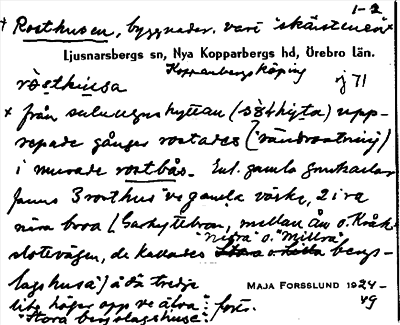 1-2
+ Rosthusen, byggnader vari "skärstenen"
Ljusnarsbergs sn, Nya Kopparbergs hd, Örebro län.
Kopparbergs köping
röshusa nj 71
× från suluugnshyttan (sǫ́thỳta) upp-
repade gånger rostades ("vändrostning")
i murade rostbås. Enl. gamla grufkartor
fanns 3 rosthus ve gamla värke, 2 i ra
nära broa (Garhyttebron, mellan ån o. Kråk-
slottsvägen, de kallades
"Nigra" o. "Millra" bergs-
lagshusa) å dä tredje
lite höger opp ve älva:
"Stora bergslagshuse". forts.
MAJA FORSSLUND 1924-
49